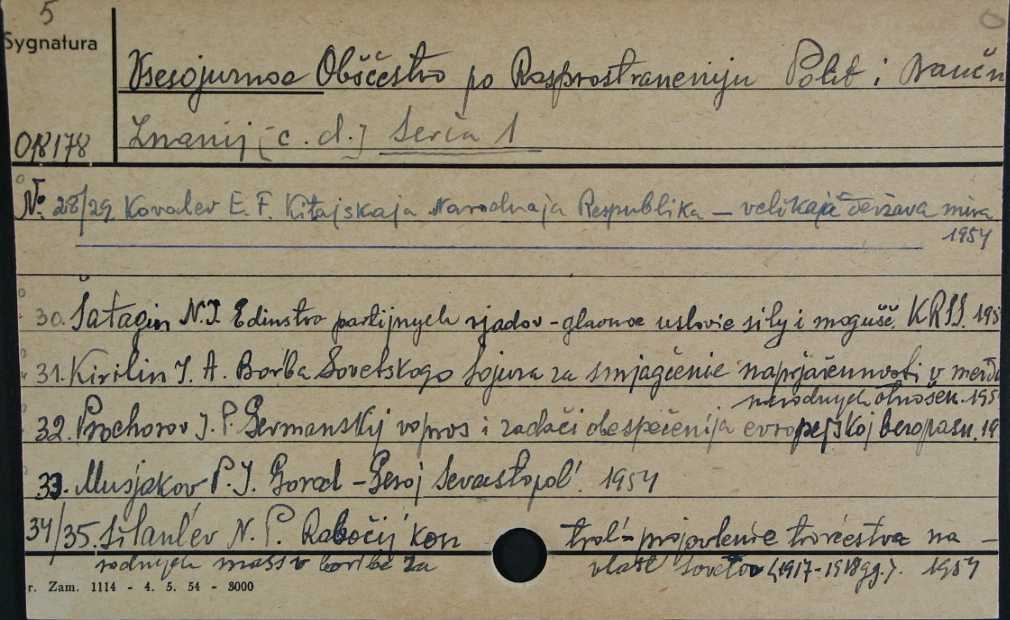 5
Sygnatura
Vsesojuznoe Obščestvo po Rasprostraneniju Polit i Naučn
018178 Znanij [c. d.] Seria 1
№ 28/29 Kovalev E. F. Kitajskaja Narodnaja Respublika – velikaja deržava mira
1954
30. Šatagin N.I. Edinstvo partijnych rjadov – glavnoe uslovie siły i mogušč. KPSS. 195
31. Kirilin I. A. Bor'ba Sovetskogo Sojuza za smjagčenie naprjažennosti v meždu
narodnych otnošen. 195
32. Prochorov I. P. Germanskij vopros i zadači obespečenija evropejskoj bezopasn. 19
33. Musjakov P. I. Gorod – Geroj Sevastopol' 1954
34/35. Silant'ev N. P. Rabočij kon trol' – projavlenie tvorčestva na –
rodnych mass v bor'be za vlast' Sovetov (1917-1918 gg.). 1954
r. Zam. 1114 - 4. 5. 54 - 3000